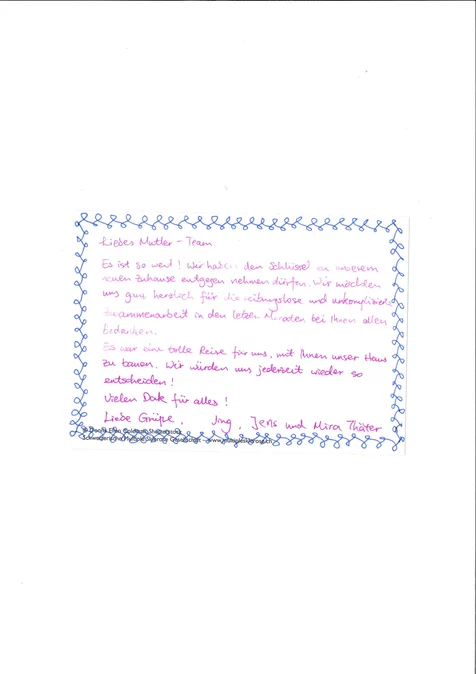 Liebes Mutler-Team
Es ist so weit! Wir haben den Schlüssel zu unserem
neuen Zuhause entgegen nehmen dürfen. Wir möchten
uns ganz herzlich für die reibungslose und unkomplizierte
Zusammenarbeit in den letzen Monaten bei Ihnen allen
bedanken.
Es war eine tolle Reise für uns, mit Ihnen unser Haus
zu bauen. Wir würden uns jederzeit wieder so
entscheiden!
Vielen Dak für alles!
Liebe Grüße, Jing, Jens und Mira Thäter
Schweizerische Multiple Sklerose Gesellschaft - www.multiplesklerose.ch